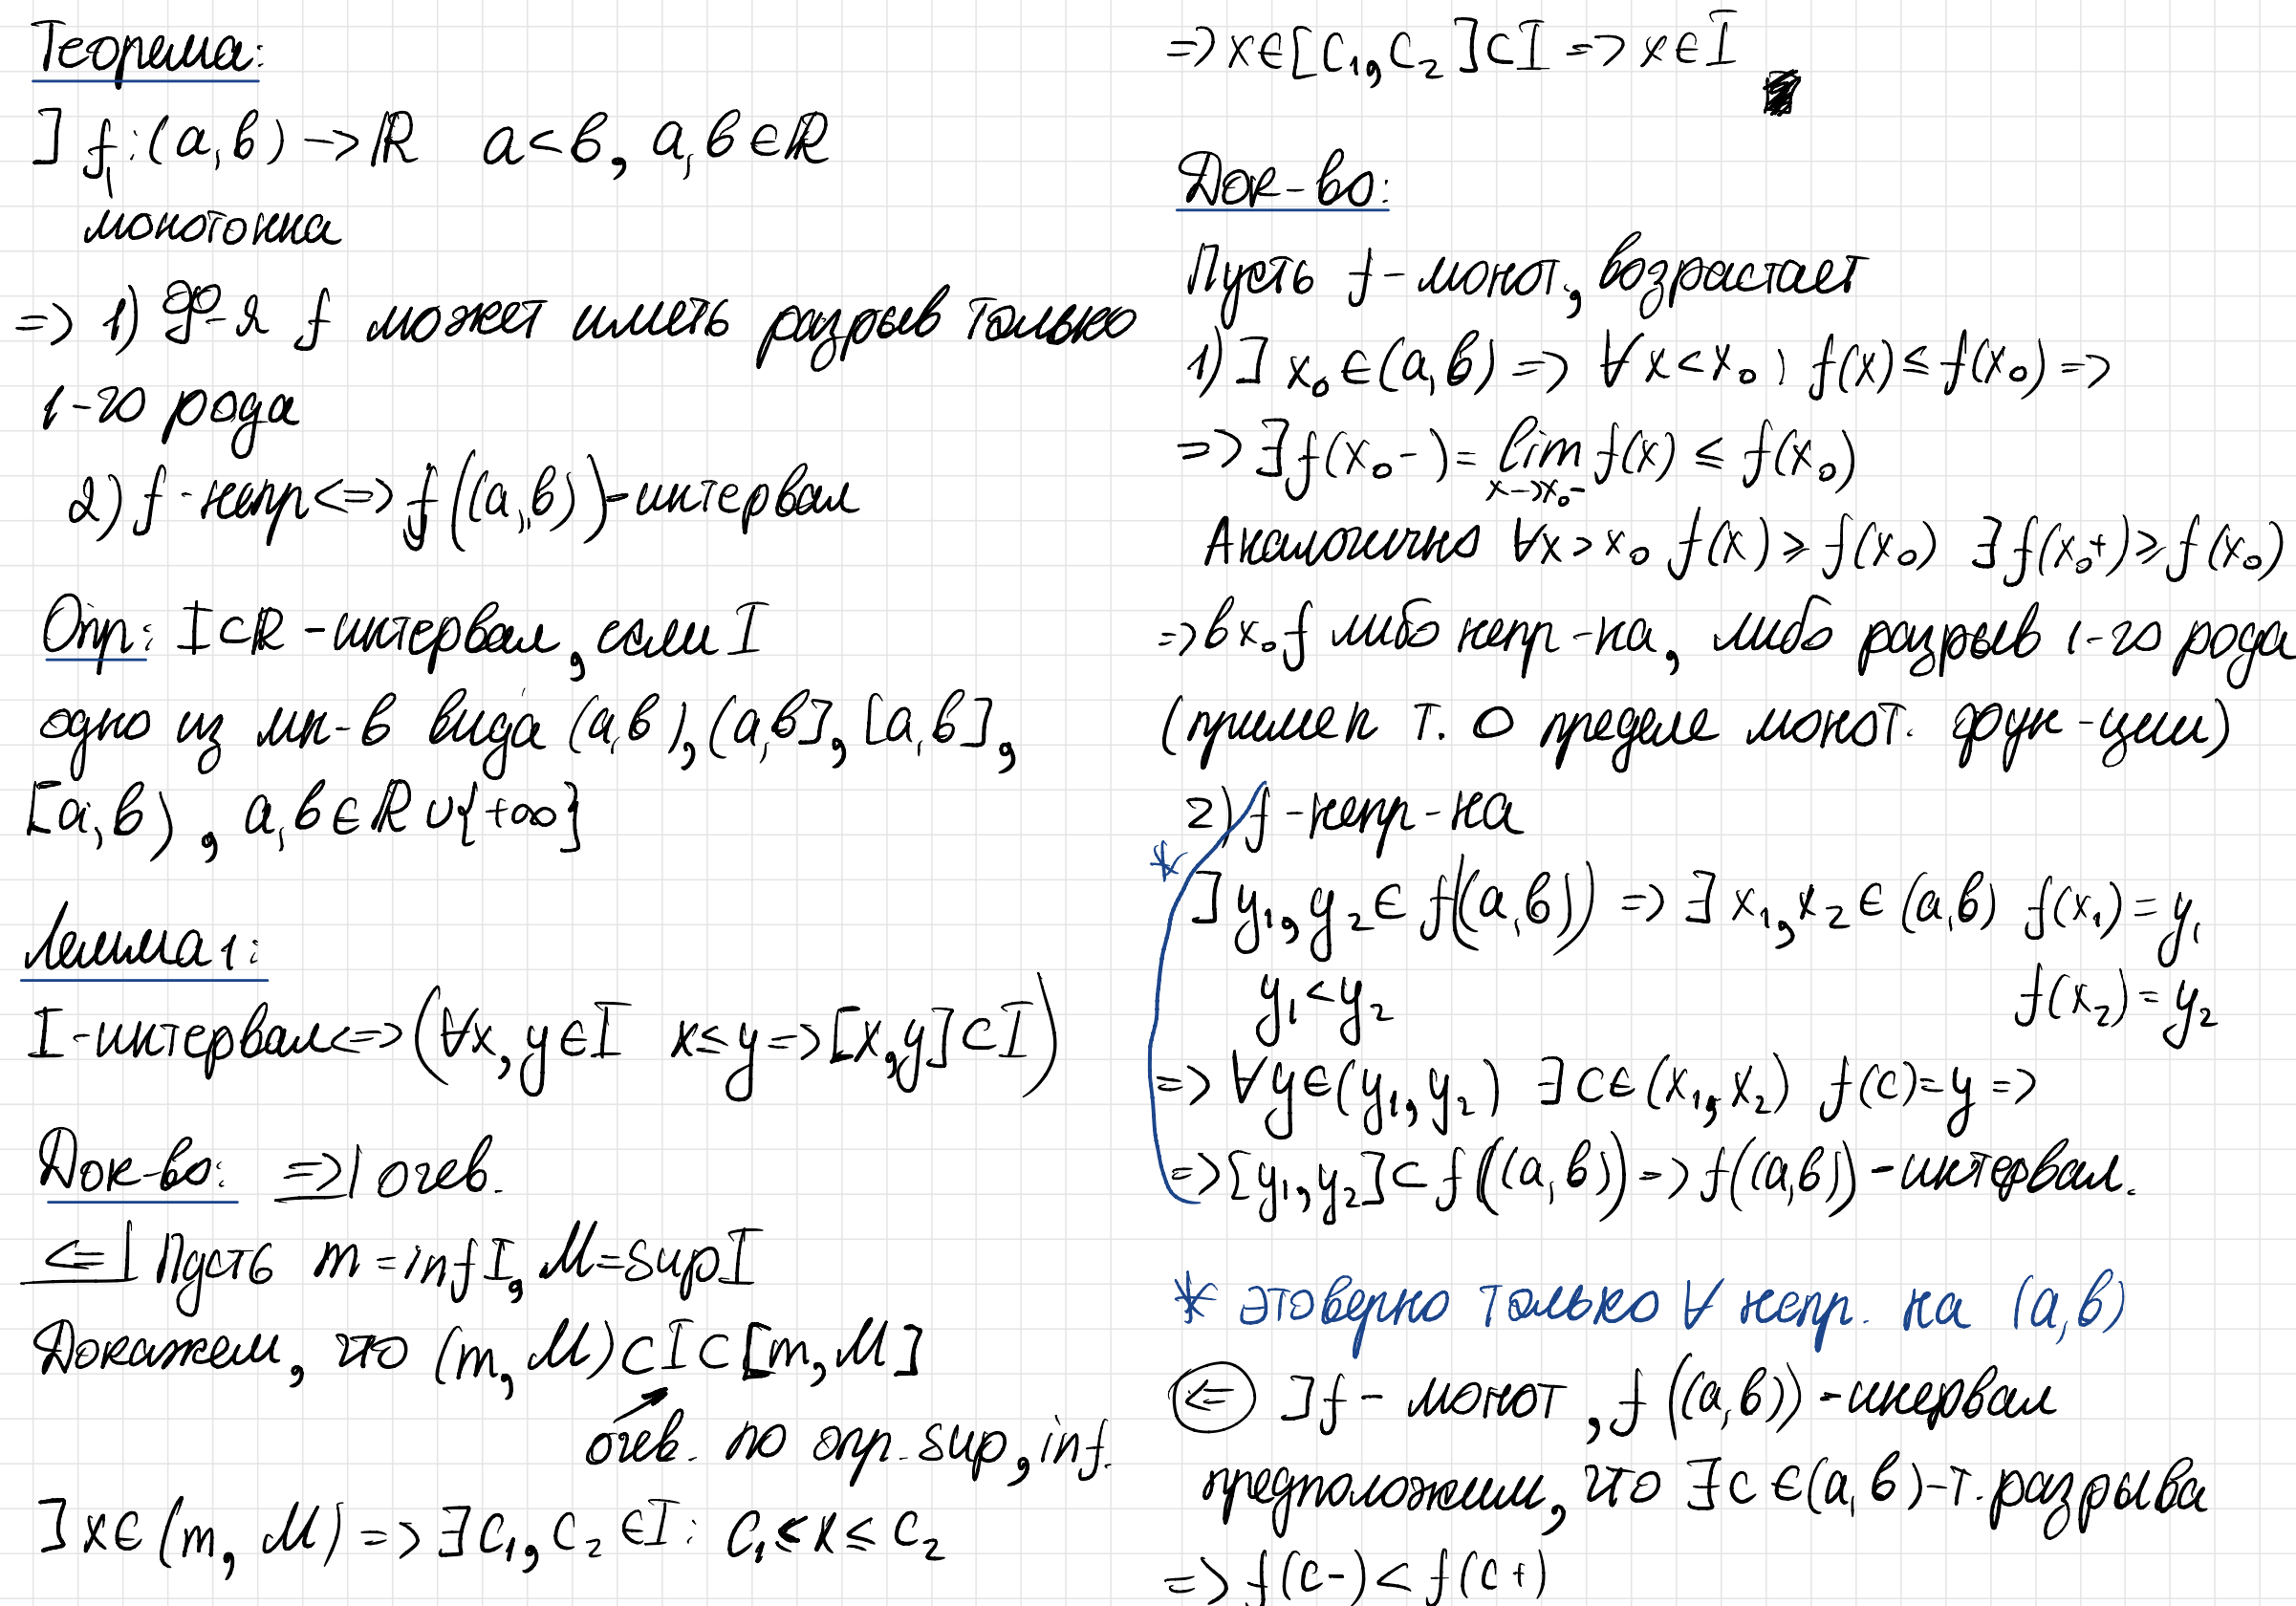 Теорема:
] f: (a, b) -> ℝ a < b, a, b ∈ ℝ
монотонна
=> 1) Ф-я f может иметь разрыв только
1-го рода
2) f - непр <=> f((a, b)) - интервал
Опр: I ⊂ ℝ - интервал, если I
одно из мн-в вида (a, b), (a, b], [a, b],
[a, b), a, b ∈ ℝ ∪ {+∞}
Лемма 1:
I - интервал <=> (∀x, y ∈ I x ≤ y => [x, y] ⊂ I)
Док-во: =>| очев.
<=| Пусть m = inf I, M = sup I
Докажем, что (m, M) ⊂ I ⊂ [m, M]
очев. по опр. sup, inf.
] x ∈ (m, M) => ∃ c₁, c₂ ∈ I: c₁ ≤ x ≤ c₂
=> x ∈ [c₁, c₂] ⊂ I => x ∈ I
Док-во:
Пусть f - монот, возрастает
1) ] x₀ ∈ (a, b) => ∀ x < x₀ , f(x) ≤ f(x₀) =>
=> ∃ f(x₀-) = lim f(x) ≤ f(x₀)
x->x₀-
Аналогично ∀x > x₀ f(x) ≥ f(x₀) ∃ f(x₀+) ≥ f(x₀)
=> в x₀ f либо непр-на, либо разрыв 1-го рода
(примен т. о пределе монот. фун-ции)
2) f - непр-на
* ] y₁, y₂ ∈ f((a, b)) => ∃ x₁, x₂ ∈ (a, b) f(x₁) = y₁
y₁ < y₂ f(x₂) = y₂
=> ∀ y ∈ (y₁, y₂) ∃ c ∈ (x₁, x₂) f(c) = y =>
=> [y₁, y₂] ⊂ f((a, b)) => f((a, b)) - интервал.
* это верно только ∀ непр. на (a, b)
<= ] f - монот, f((a, b)) - инервал
предположим, что ∃ c ∈ (a, b) - т. разрыва
=> f(c-) < f(c+)